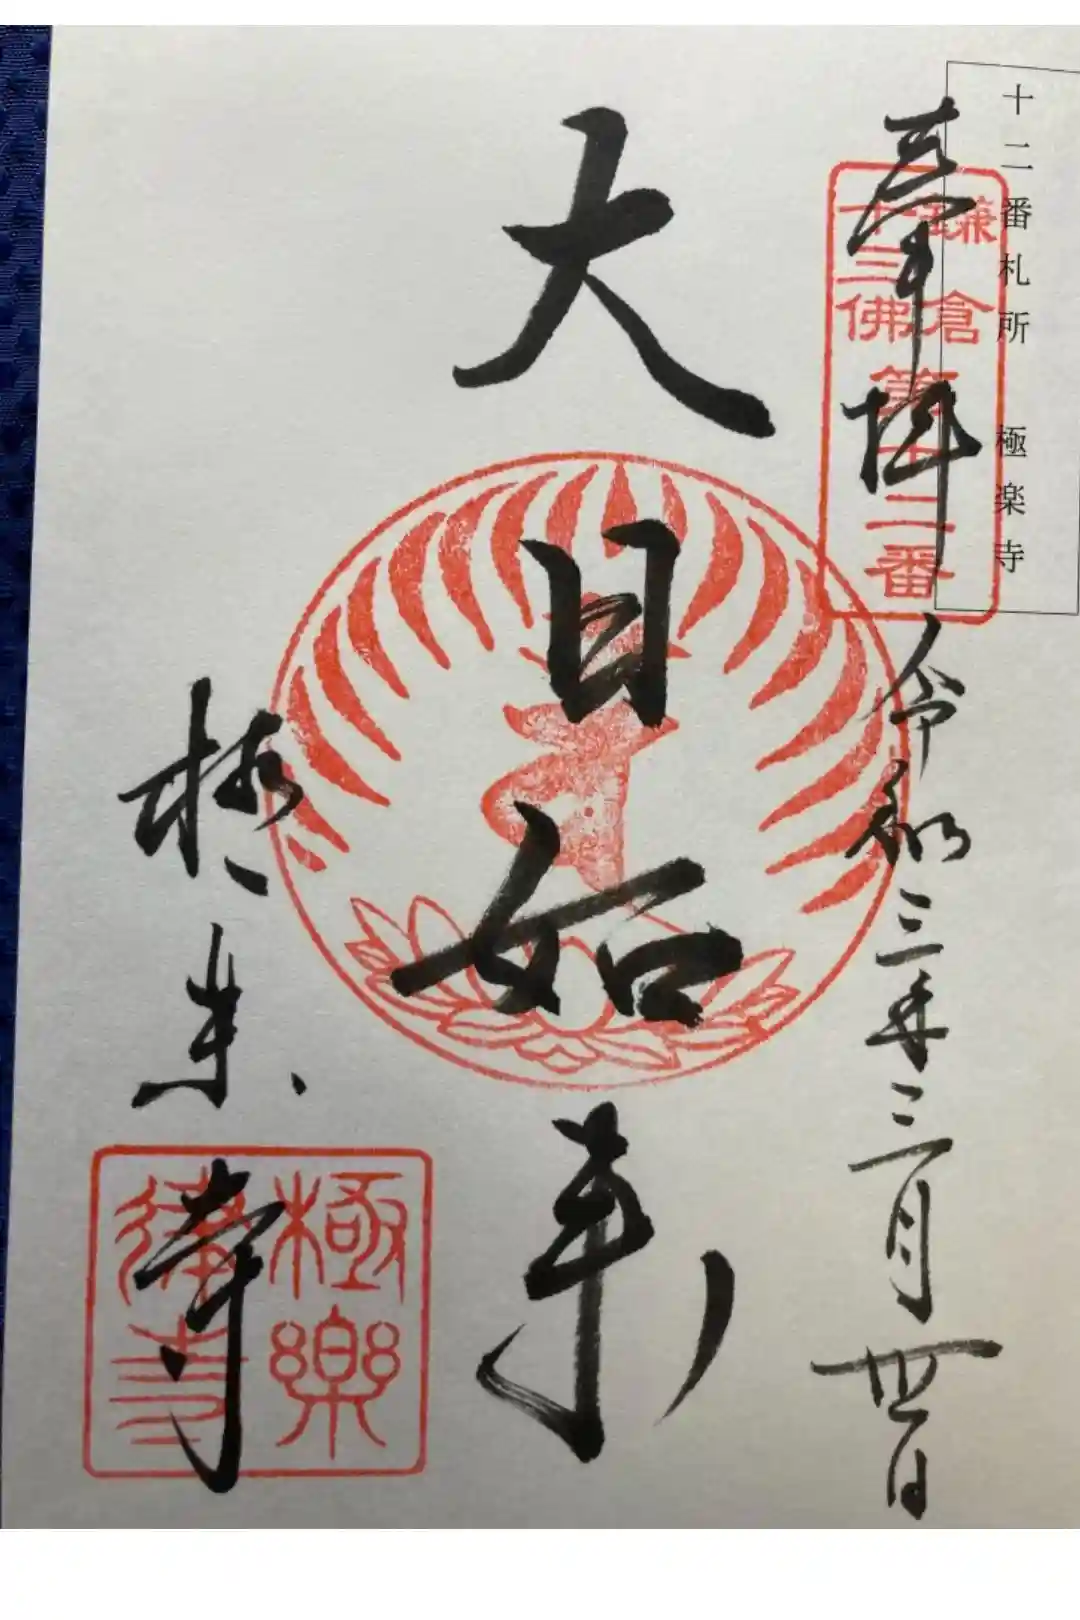 十二番札所 極楽寺
奉拝 令和三年三月日
鎌倉
十三佛
第十二番
大日如来
極楽寺
極樂
律寺